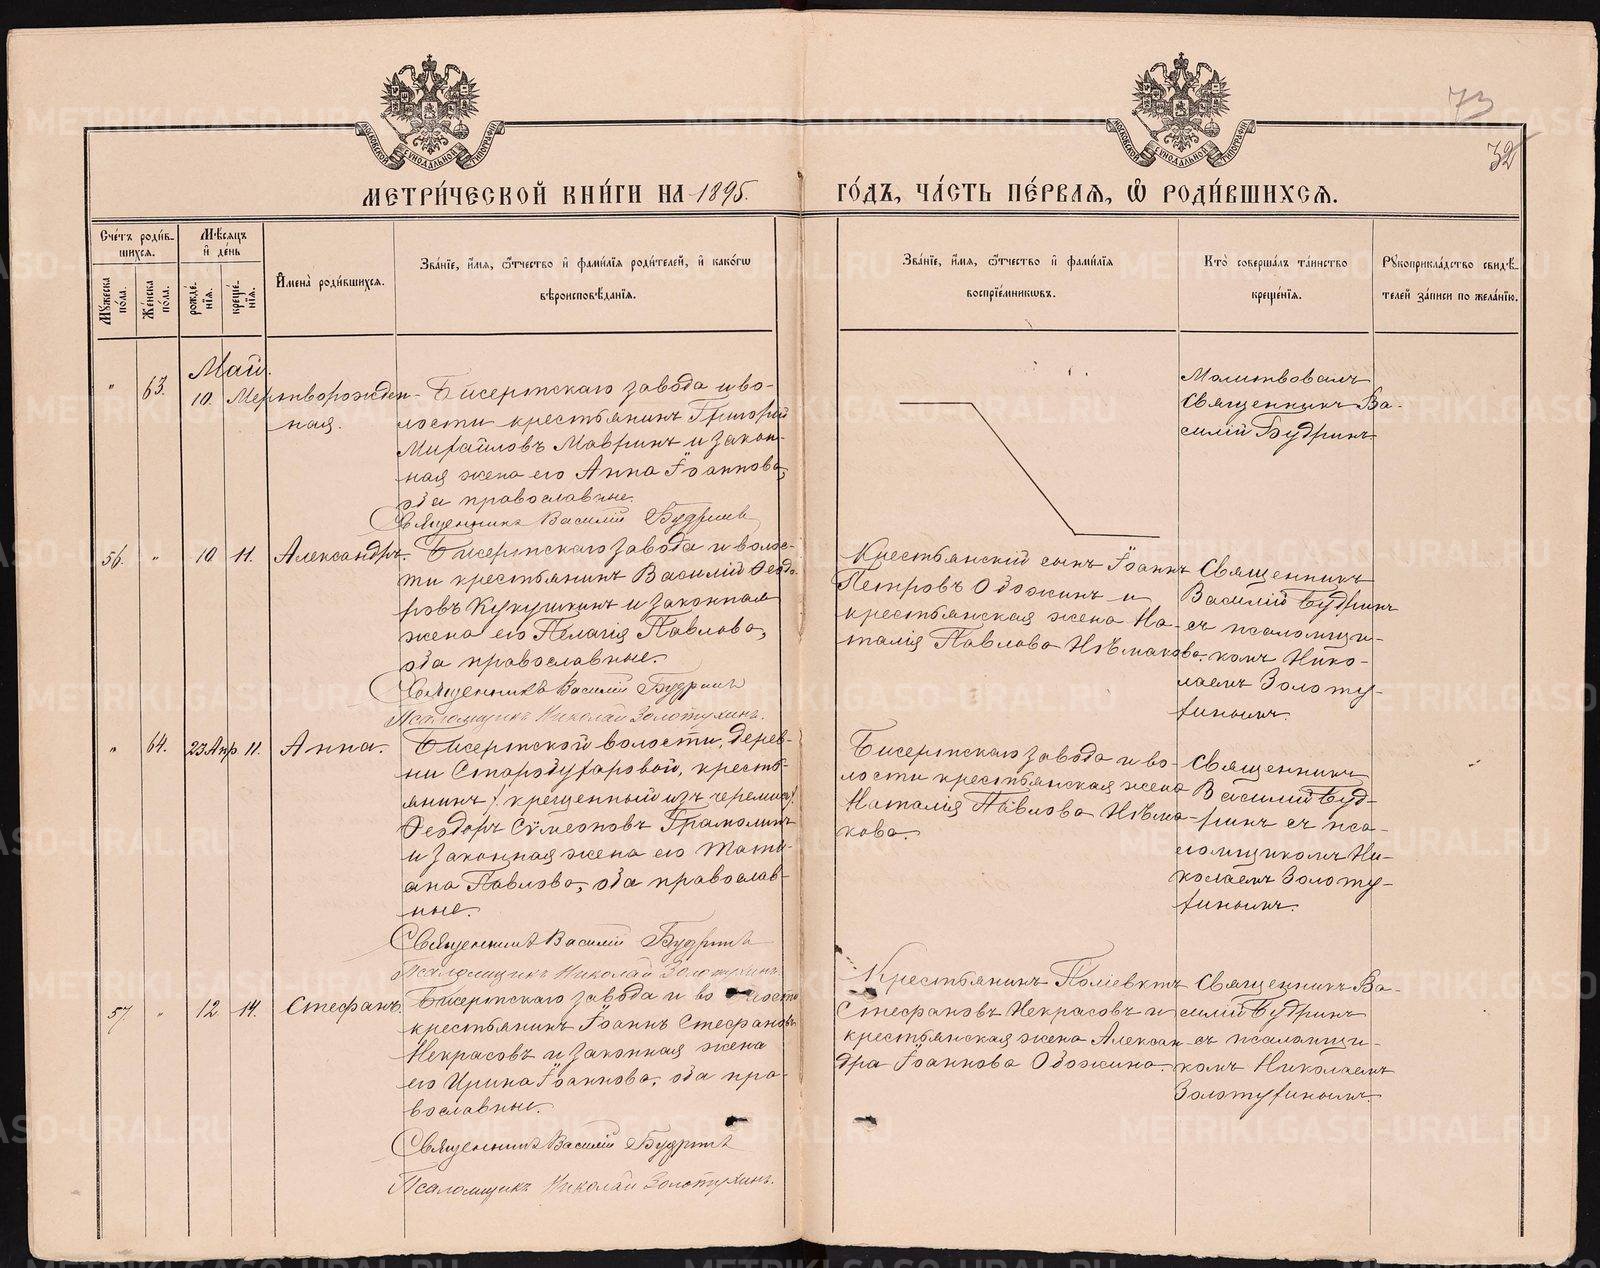 73
32
МОСКОВСКОЙ СѴНОДАЛЬНОЙ ТИПОГРАФІИ
МОСКОВСКОЙ СѴНОДАЛЬНОЙ ТИПОГРАФІИ
МЕТРИ́ЧЕСКОЙ КНИ́ГИ НА 1895.
ГО́ДЪ, ЧА́СТЬ ПЕ́РВАЯ, Ѽ РОДИ́ВШИХСЯ.
Сче́тъ роди́в-
шихся.
Му́жеска
пола.
Же́нска
пола.
Мѣ́сяцъ
и́ де́нь
рожде́-
нія.
креще́-
нія.
И҆мена̀ роди́вшихся.
Зва́ніе, и҆́мя, ѻ҆́тчество и҆ фами́лія роди́телей, и҆ како́гѡ
вѣроисповѣ́данія.
Зва́ніе, и҆́мя, ѻ҆́тчество и҆ фами́лія
воспріе́мниковъ.
Кто̀ соверша́лъ та́инство
креще́нія.
Рꙋкоприкла́дство свидѣ́-
телей за́писи по жела́нію.
Май.
" 63. 10. Мертворожден-
ная.
Бисертскаго завода и во-
лости крестьянинъ Григорій
Михайловъ Мавринъ и закон-
ная жена его Анна Іоаннова,
оба православные.
Священникъ Василій Будринъ
Молитвовалъ
Священникъ Ва-
силій Будринъ
56. " 10 11. Александръ.
Бисертскаго завода и волос-
ти крестьянинъ Василій Ѳеодо-
ровъ Кукушкинъ и законная
жена его Пелагія Павлова,
оба православные.
Священникъ Василій Будринъ
Псаломщикъ Николай Золотухинъ.
Крестьянскій сынъ Іоаннъ
Петровъ Обожинъ и
крестьянская жена На-
талія Павлова Нѣмакова.
Священникъ
Василій Будринъ
съ псаломщи-
комъ Нико-
лаемъ Золоту-
хинымъ.
" 64. 23 Апр 11. Анна.
Бисертской волости, дерев-
ни Старобухаровой, кресть-
янинъ /крещенный изъ черемисъ/
Ѳеодоръ Сѵмеоновъ Грамолинъ
и законная жена его Тати-
ана Павлова, оба православ-
ные.
Священникъ Василій Будринъ
Псаломщикъ Николай Золотухинъ.
Бисертскаго завода и во-
лости крестьянская жена
Наталія Павлова Нѣма-
кова.
Священникъ
Василій Буд-
ринъ съ пса-
ломщикомъ Ни-
колаемъ Золоту-
хинымъ.
57. " 12 14. Стефанъ.
Бисертскаго завода и волости
крестьянинъ Іоаннъ Стефановъ
Некрасовъ и законная жена
его Ирина Іоаннова, оба пра-
вославные.
Священникъ Василій Будринъ
Псаломщикъ Николай Золотухинъ.
Крестьянинъ Поліевктъ
Стефановъ Некрасовъ и
крестьянская жена Алексан-
дра Іоаннова Обожина.
Священникъ Ва-
силій Будринъ
съ псаломщи-
комъ Николаемъ
Золотухинымъ.
METRIKI.GASO-URAL.RU